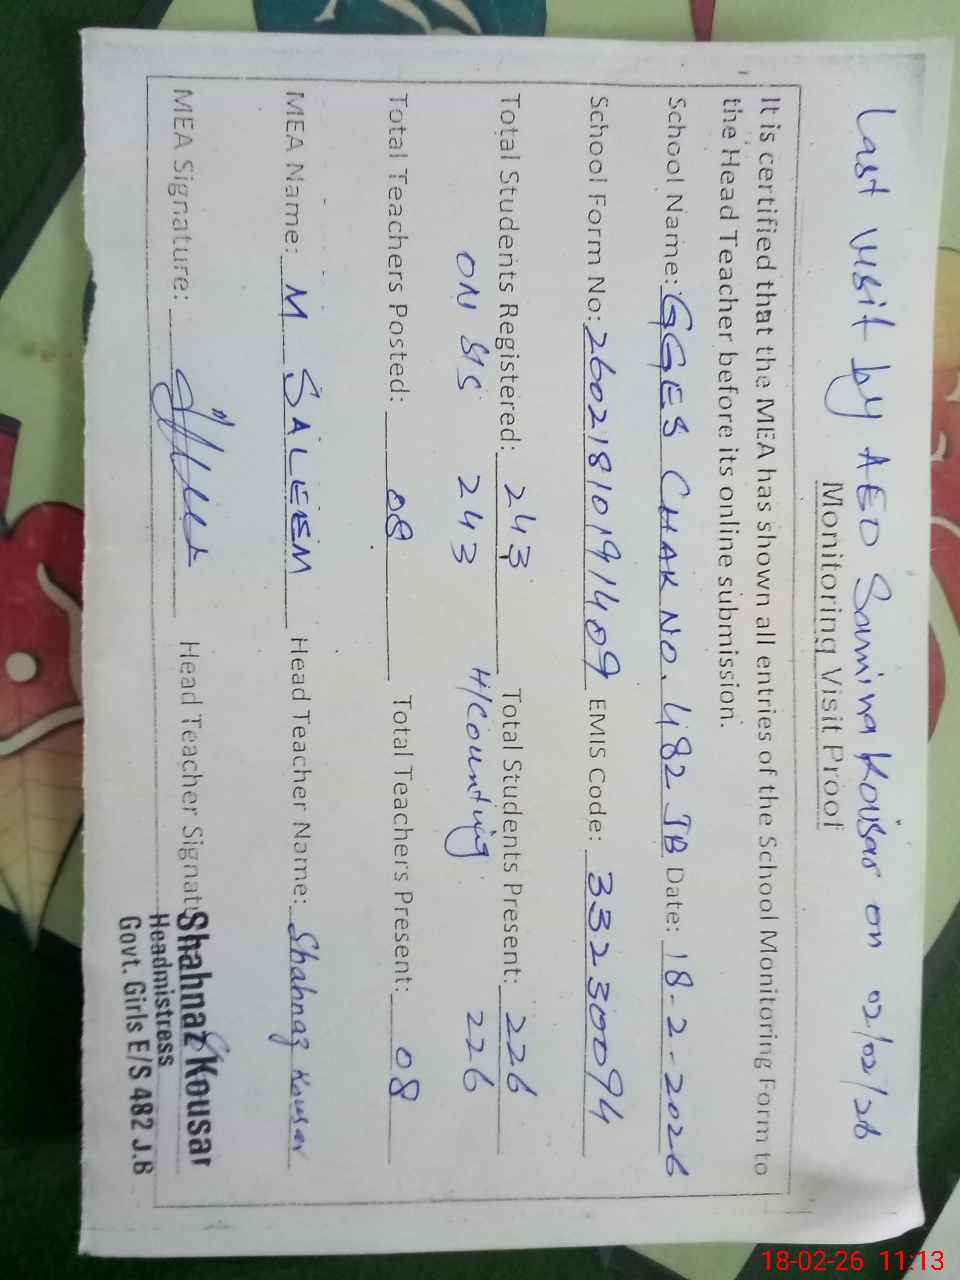 Last visit by AEO Samina Kousar on 02/02/26
Monitoring Visit Proof
It is certified that the MEA has shown all entries of the School Monitoring Form to
the Head Teacher before its online submission.
School Name: GGES CHAK NO. 482 JB Date: 18-2-2026
School Form No: 26021810191409 EMIS Code: 33230094
Total Students Registered: 243 Total Students Present: 226
ON SIS 243 H/Counting 226
Total Teachers Posted: 08 Total Teachers Present: 08
MEA Name: M SALEEM Head Teacher Name: Shahnaz Kousar
MEA Signature: Head Teacher Signatu
Shahnaz Kousar
Headmistress
Govt. Girls E/S 482 J.B
18-02-26 11:13